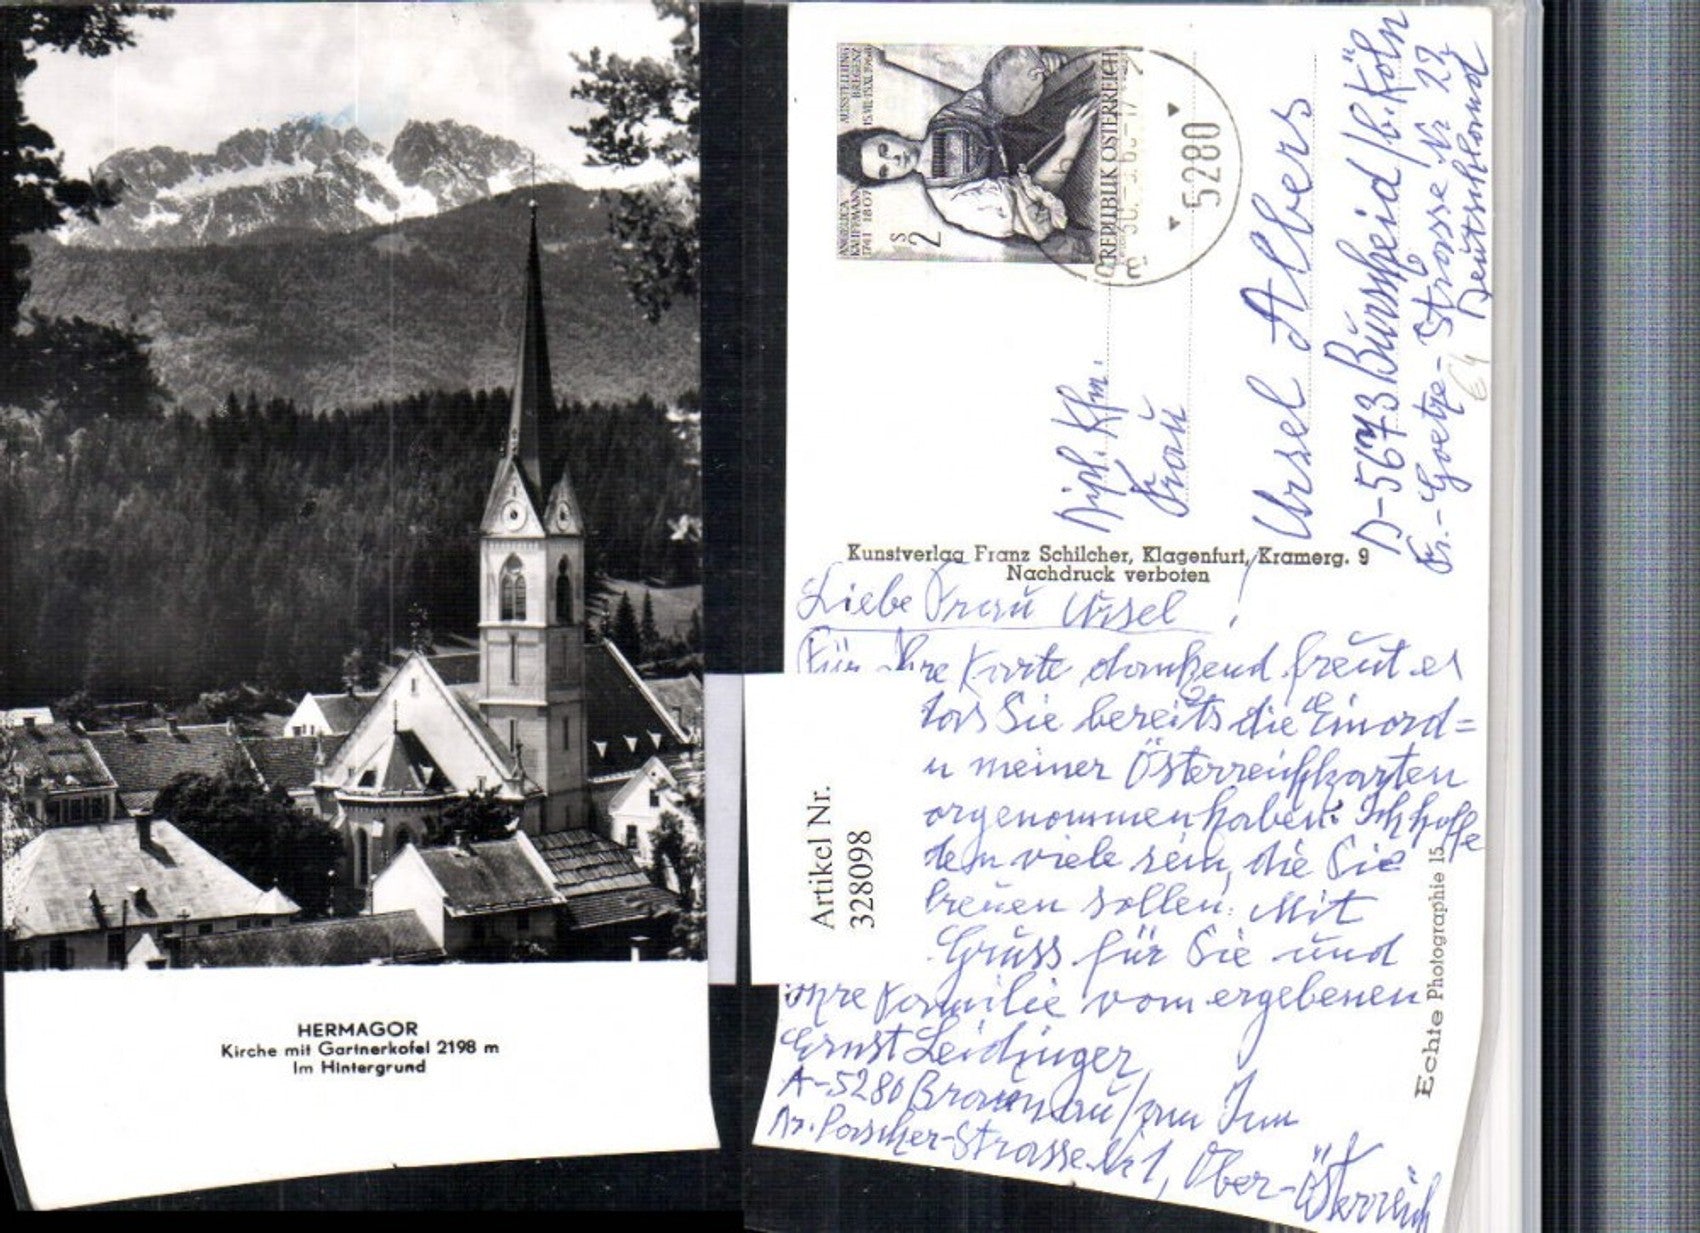 HERMAGOR
Kirche mit Gartnerkofel 2198 m
im Hintergrund
AUSSTELLUNG
BREGENZ
ANGELICA
KAUFFMANN
1741 1807
S 2
REPUBLIK ÖSTERREICH
5280
Dipl. Kfm.
Frau
Ursel Albers
D-5673 Burscheid/b. Köln
Fr.-Goetze-Strasse Nr 22
Deutschland
Kunstverlag Franz Schilcher, Klagenfurt, Kramerg. 9
Nachdruck verboten
Liebe Frau Ursel!
Für Ihre Karte dankend freut es
das Sie bereits die Einord=
n meiner Österreichkarten
orgenommen haben. Ich hoffe
viele sein, die Sie
freuen sollen. Mit
Gruss für Sie und
Ihre Familie vom ergebenen
Ernst Leidinger
A-5280 Braunau/am Inn
Dr. Porscher-Strasse Nr 1, Ober-Österreich
Artikel Nr.
328098
Echte Photographie 15